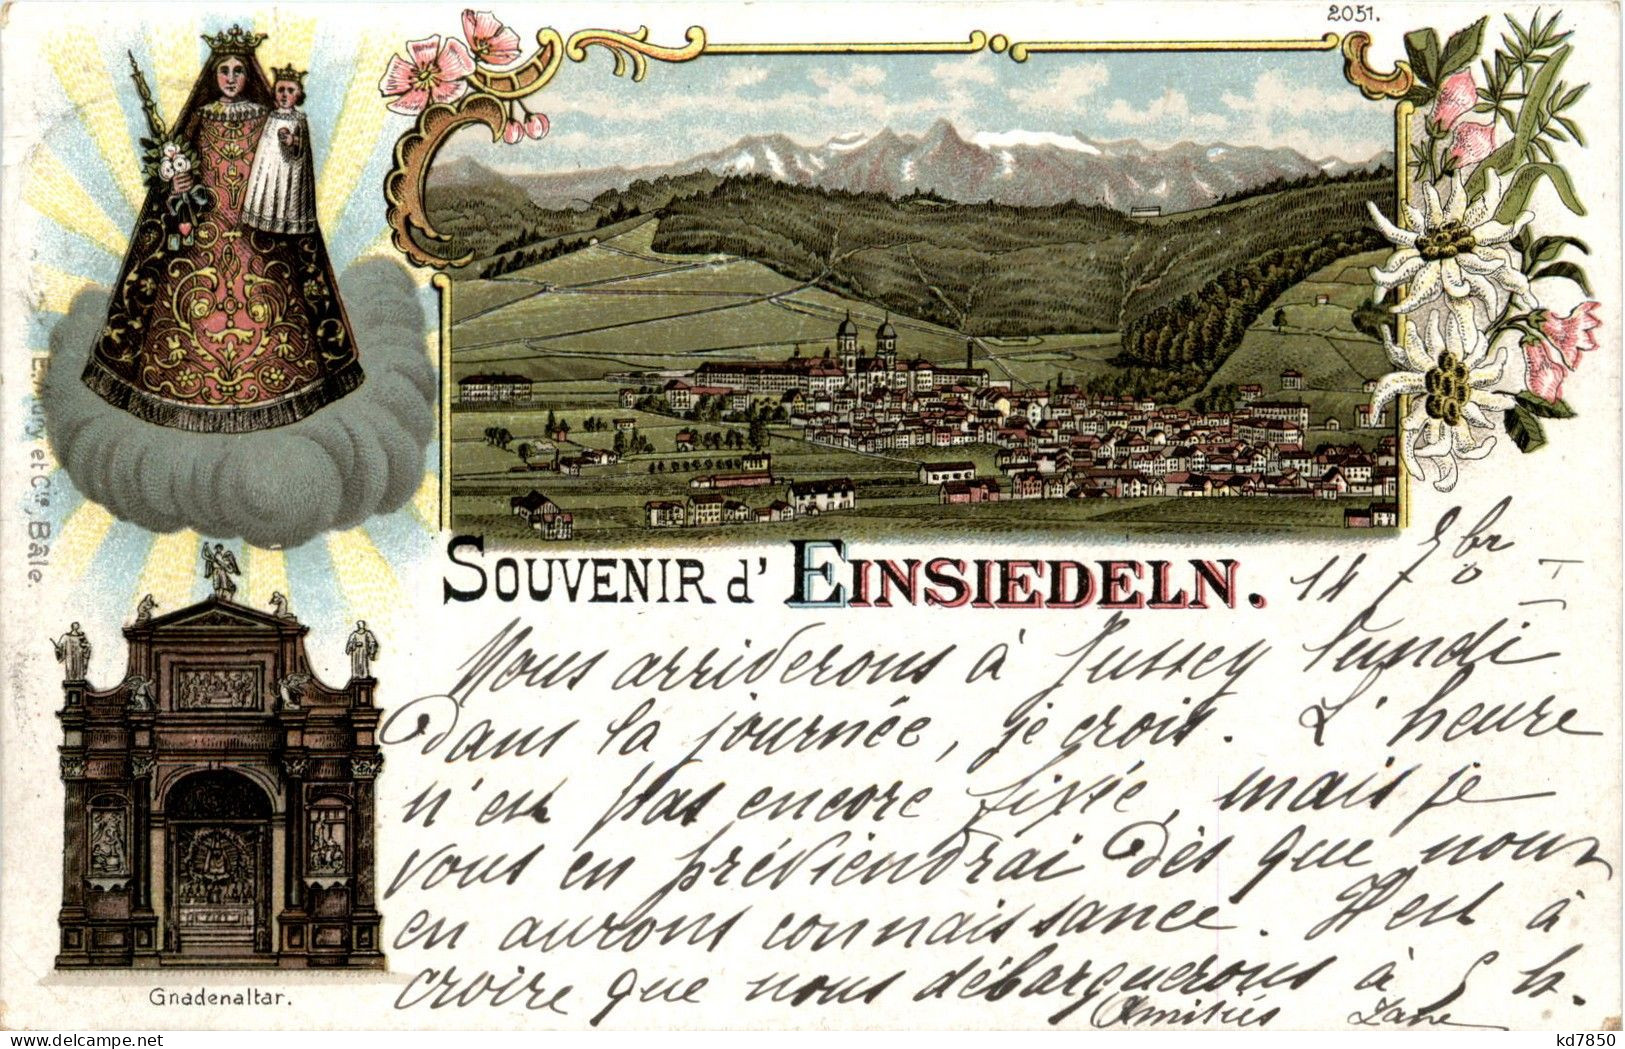 2051.
et Cie, Bâle.
SOUVENIR d' EINSIEDELN.
14
Nous arriverons à Jussey lundi
dans la journée, je crois. L'heure
n'est pas encore fixée, mais je
vous en préviendrai dès que nous
en aurons connaissance. Il est à
croire que nous débarquerons à 5 h.
Amitiés
Gnadenaltar.
kd7850